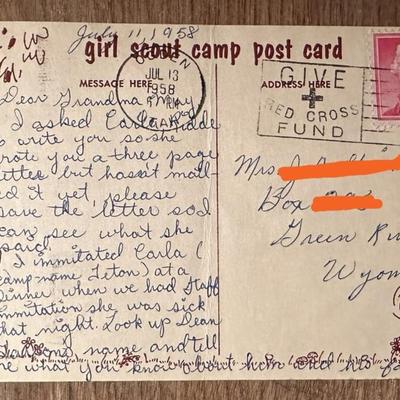 July 11, 1958
girl scout camp post card
MESSAGE HERE
OGDEN
JUL 13
1958
UTAH
ADDRESS HERE
GIVE
RED CROSS
FUND
Dear Grandma
I asked Carla
to write you so she
wrote you a three page
letter but hasn't mail-
ed it yet, please
save the letter so I
can see what she
said.
I immitated Carla (
camp name Teton) at a
dinner when we had Staff
immitation she was sick
that night. Look up Dean
name and tell
me what you know about them and
Mrs
Box
Green
Wyom